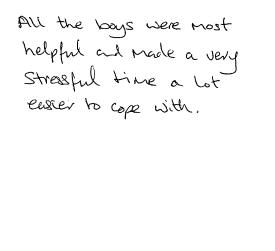 All the boys were most
helpful and made a very
stressful time a lot
easier to cope with.